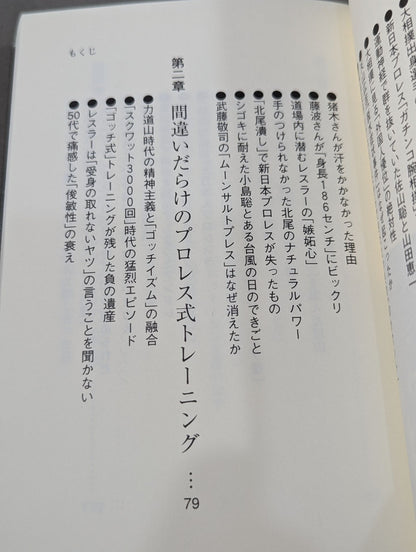 大相撲出身
●新日本プロレス「ガチンコ」腕
●運動神経で群を抜いていた佐山聡と山田恵一
●猪木さんが汗をかかなかった理由
●藤波さんが「身長186センチ」にビックリ
●道場内に潜むレスラーの「嫉妬心」
●手のつけられなかった北尾のナチュラルパワー
●「北尾潰し」で新日本プロレスが失ったもの
●シゴキに耐えた小島聡とある台風の日のできごと
●武藤敬司の「ムーンサルトプレス」はなぜ消えたか
第二章 間違いだらけのプロレス式トレーニング … 79
●力道山時代の精神主義と「ゴッチイズム」の融合
●「スクワット3000回」時代の猛烈エピソード
●「ゴッチ式」トレーニングが残した負の遺産
●レスラーは「受身の取れないヤツ」の言うことを聞かない
●50代で痛感した「俊敏性」の衰え
もくじ